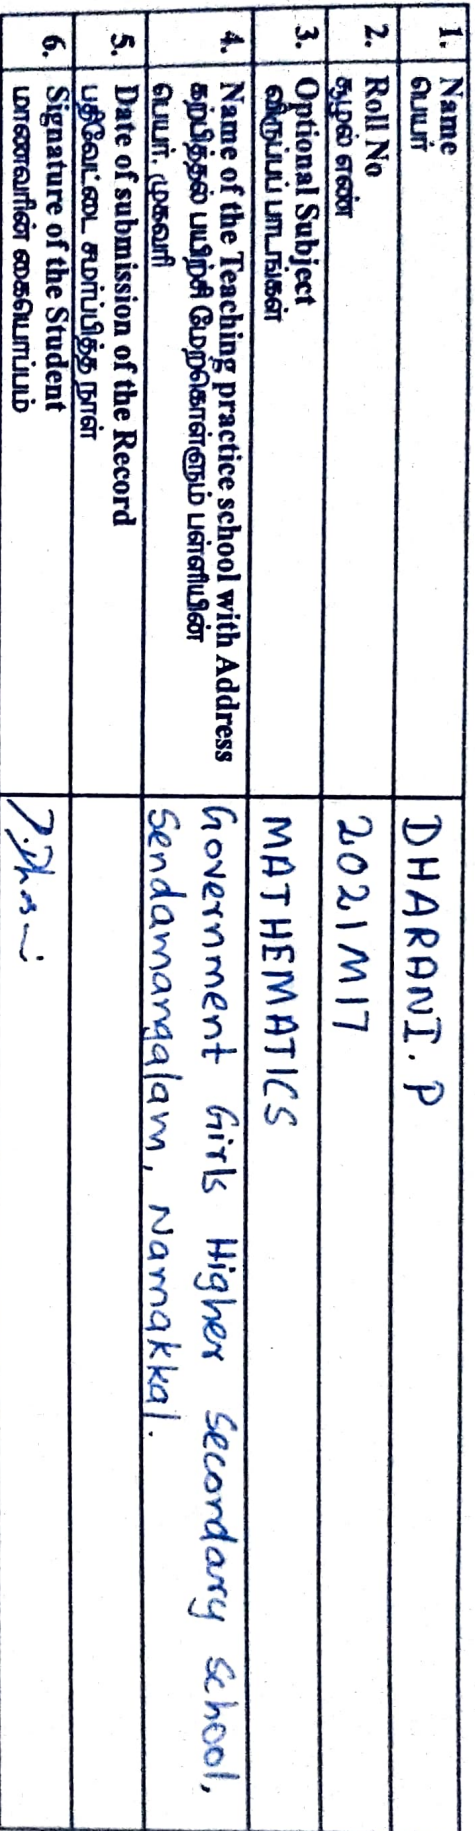 1. Name
பெயர்
DHARANI. P
2. Roll No
சுழல் எண்
2021M17
3. Optional Subject
விருப்பப் பாடங்கள்
MATHEMATICS
4. Name of the Teaching practice school with Address
கற்பித்தல் பயிற்சி மேற்கொள்ளும் பள்ளியின்
பெயர், முகவரி
Government Girls Higher Secondary School,
Sendamangalam, Namakkal.
5. Date of submission of the Record
பதிவேட்டை சமர்ப்பித்த நாள்
6. Signature of the Student
மாணவரின் கையொப்பம்